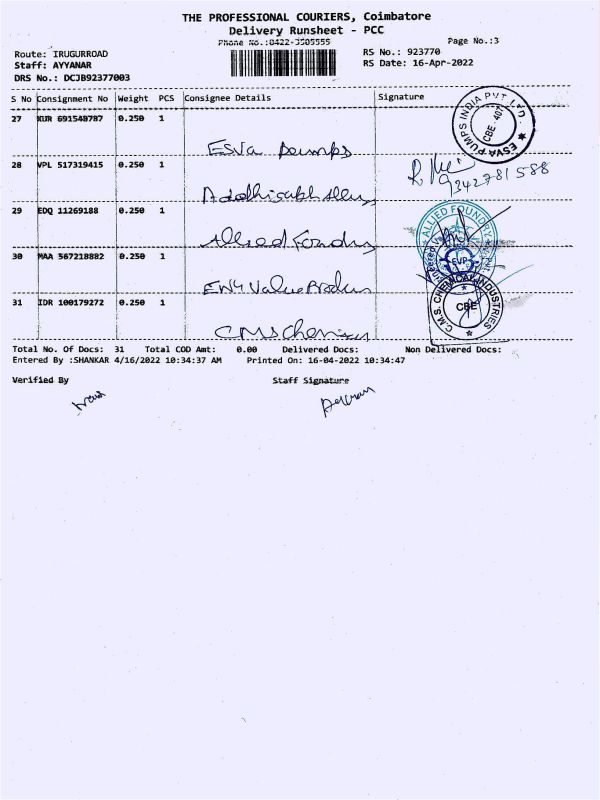 THE PROFESSIONAL COURIERS, Coimbatore
Delivery Runsheet - PCC
Phone No.:0422-3505555
Page No.:3
Route: IRUGURROAD
RS No.: 923770
Staff: AYYANAR
RS Date: 16-Apr-2022
DRS No.: DCJB92377003
S No Consignment No Weight PCS Consignee Details Signature
27 KUR 691548787 0.250 1 Esva pumps
ESVA PUMPS INDIA PVT. LTD. CBE - 402
28 VPL 517319415 0.250 1
9342781588
29 EDQ 11269188 0.250 1 Allied Foundry
ALLIED FOUNDRY
30 MAA 567218882 0.250 1 Value
EVP
31 IDR 100179272 0.250 1 CMS Chemi
C.M.S. CHEMICAL INDUSTRIES CBE
Total No. Of Docs: 31 Total COD Amt: 0.00 Delivered Docs: Non Delivered Docs:
Entered By :SHANKAR 4/16/2022 10:34:37 AM Printed On: 16-04-2022 10:34:47
Verified By Staff Signature